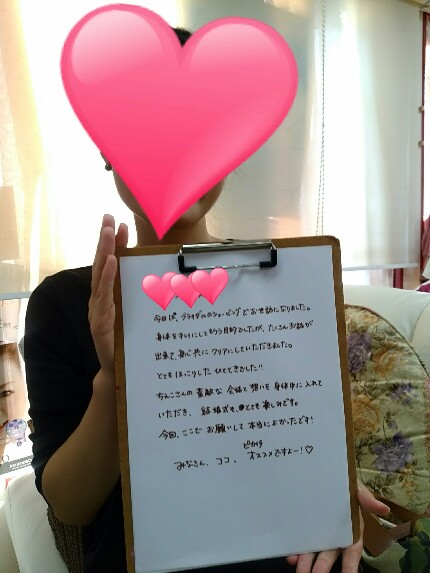 今日は、ブライダルのシェービングでお世話になりました。
身体をキレイにしてもらう目的でしたが、たくさんお話が
出来て、身心共にクリアにしていただきました。
とてもほっこりしたひとときでした!!
ちえこさんの素敵な会話と想いを身体中に入れて
いただき、結婚式も、とても楽しみです。
今回、ここでお願いして本当によかったです!
ピカイチ
みなさん、ココ、オススメですよー!♡